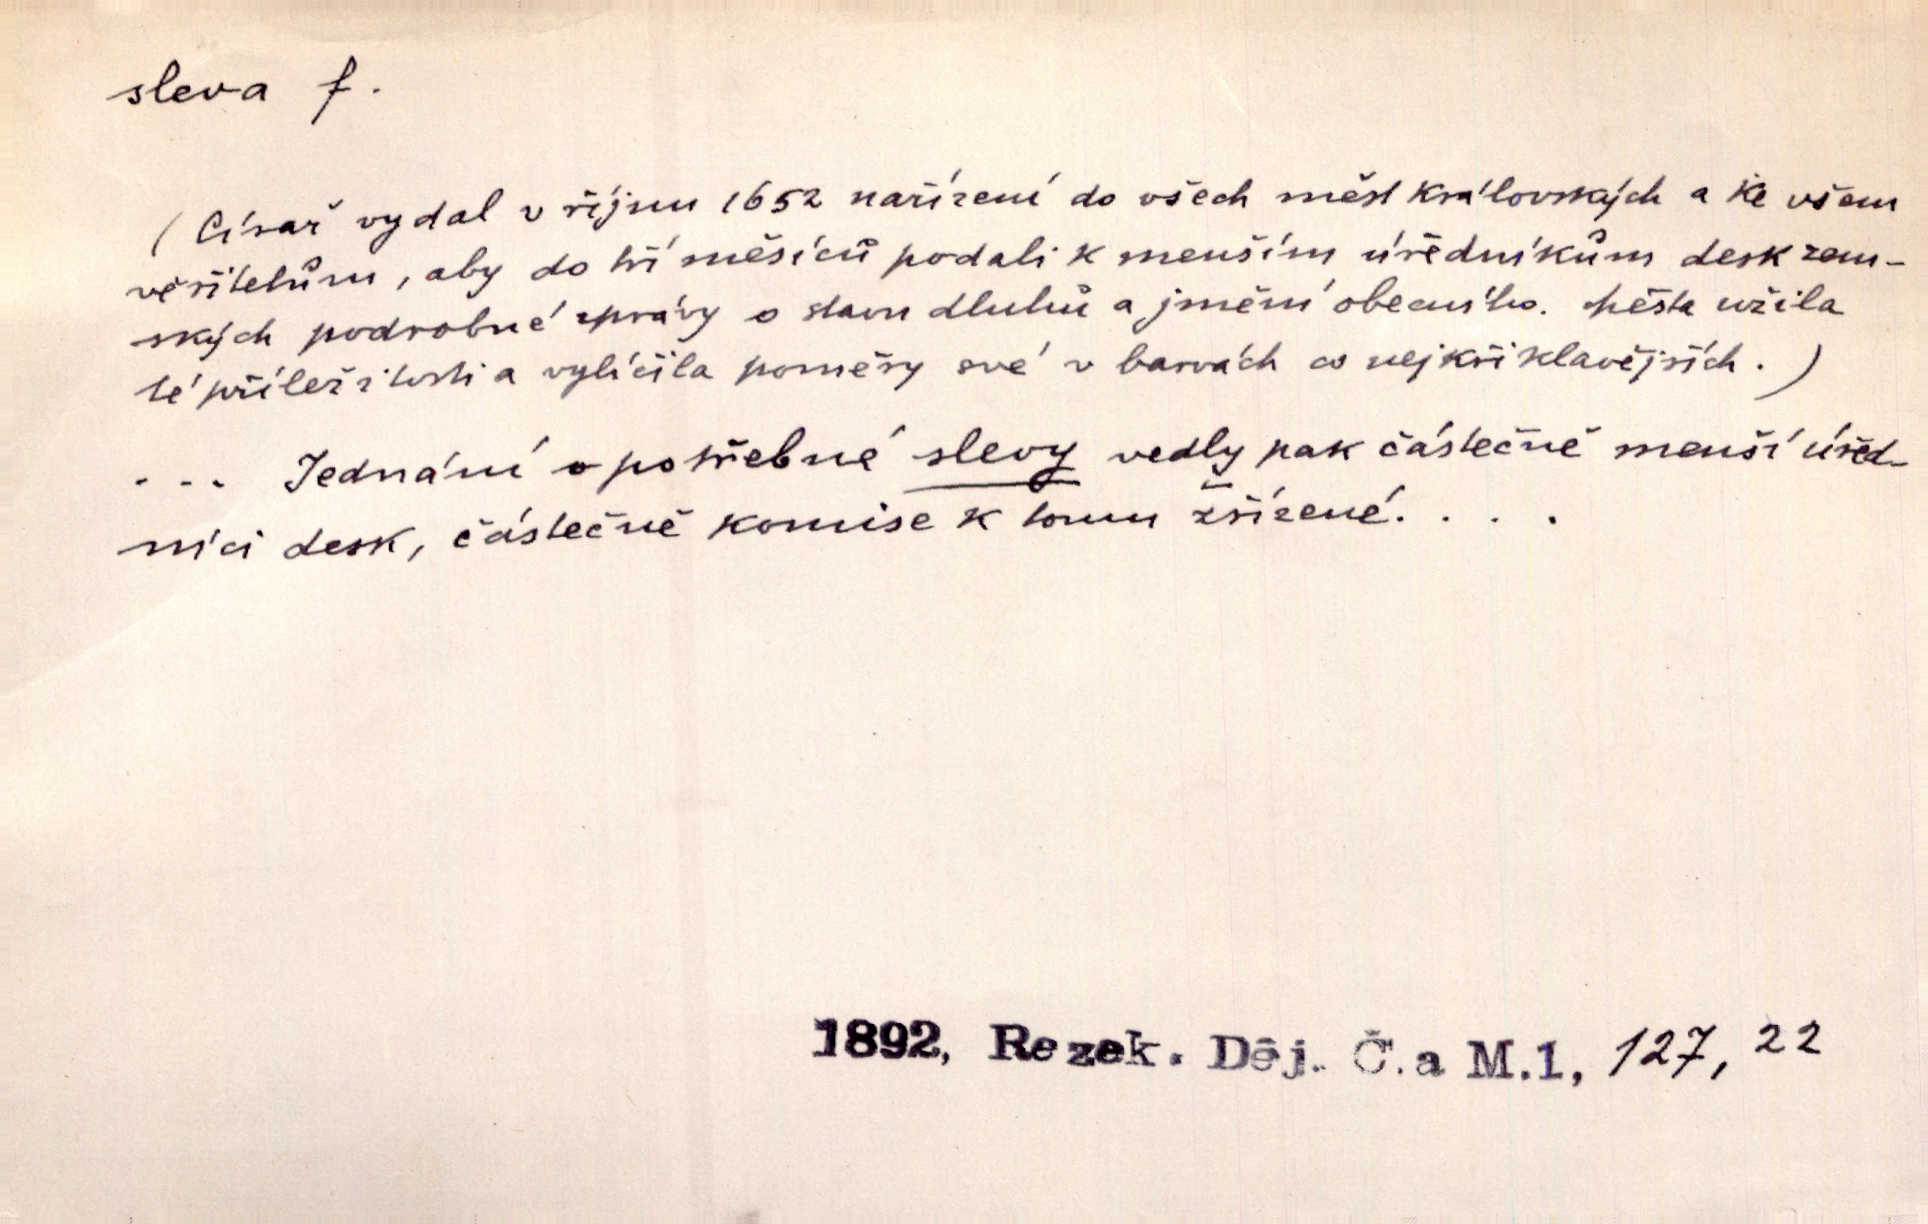 sleva f.
(Císař vydal v říjnu 1652 nařízení do všech měst královských a ke všem
věřitelům, aby do tří měsíců podali k menším úředníkům desk zem-
ských podrobné zprávy o stavu dluhů a jmění obecního. Města užila
té příležitosti a vylíčila poměry své v barvách co nejkřiklavějších.)
... Jednání o potřebné slevy vedly pak částečně menší úřed-
níci desk, částečně komise k tomu zřízené. . . .
1892, Rezek. Děj. Č. a M.1, 127, 22